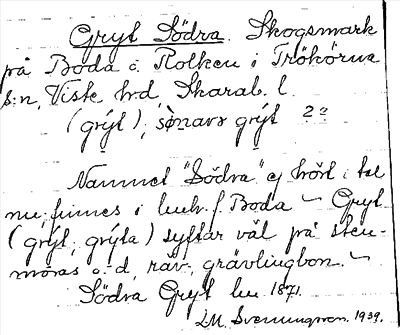 Gryt Södra. Skogsmark
på Boda o. Rolken i Trökörna
s:n, Viste hd, Skarab. l.
(grýt), sönavr grýt 2º
Namnet "Södra" ej hört i tal
nu, finnes i luch. f. Boda ~ Gryt
(grýt, grýta) syftar väl på sten-
möras o. d, räv-, grävlingbon. ~
Södra Gryt lu 1871.
LM. Svenungsson. 1939.